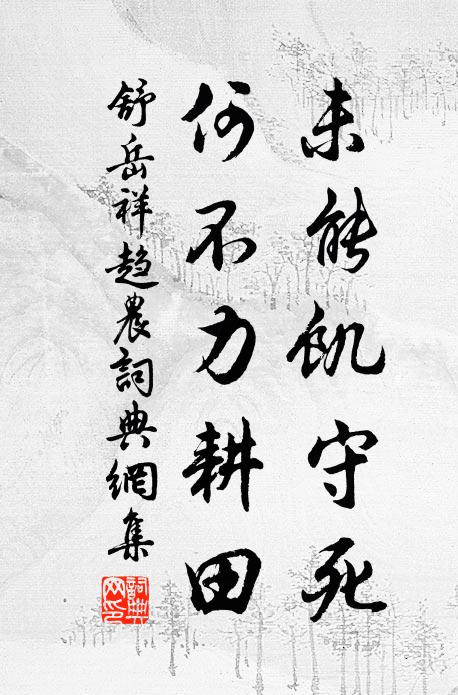 未能飢守死
何不力耕田
舒岳祥趨農詞典網集
詞典
网印